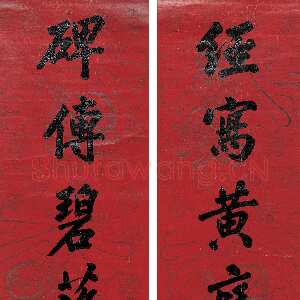 經寓黄
碑傳碧
Shufawang.CN